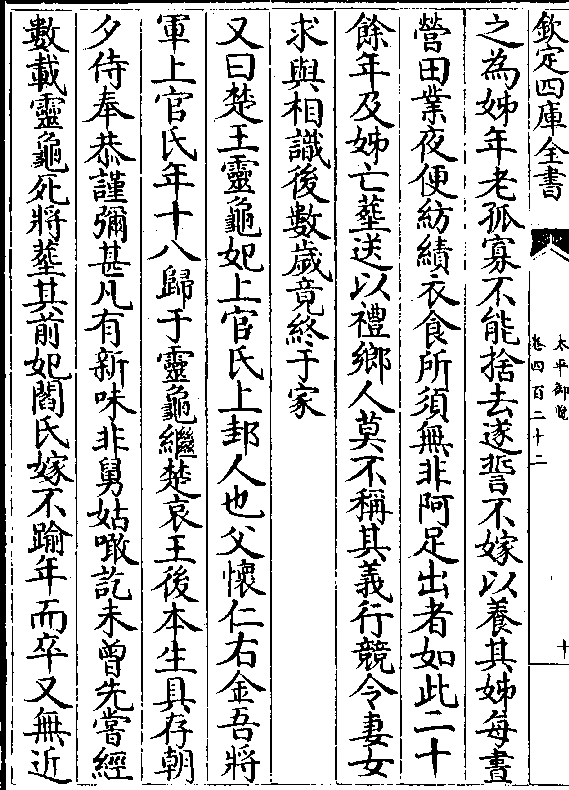 欽定四庫全書
太平御覽
卷四百二十二
十
之為姊年老孤寡不能捨去遂誓不嫁以養其姊每晝
營田業夜便紡績衣食所須無非阿足出者如此二十
餘年及姊亡塟送以禮鄉人莫不稱其義行競令妻女
求與相識後數歳竟終于家
又曰楚王靈龜妃上官氏上邽人也父懷仁右金吾將
軍上官氏年十八歸于靈龜繼楚哀王後本生具存朝
夕侍奉恭謹彌甚凡有新味非舅姑噉訖未曽先嘗經
數載靈龜死將塟其前妃閻氏嫁不踰年而卒又無近